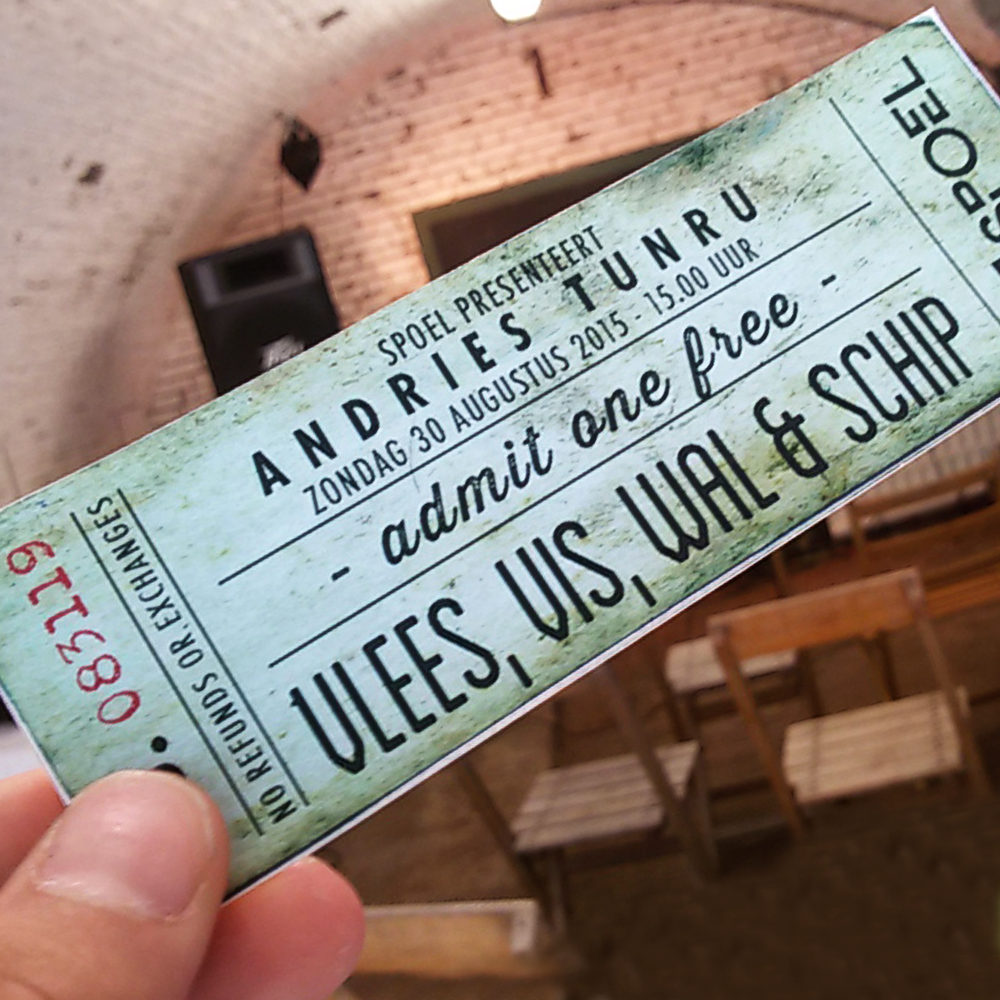 SPOEL PRESENTEERT
ANDRIES TUNRU
ZONDAG 30 AUGUSTUS 2015 - 15.00 UUR
- admit one free -
VLEES, VIS, WAL & SCHIP
NO REFUNDS OR EXCHANGES
083119
SPOEL